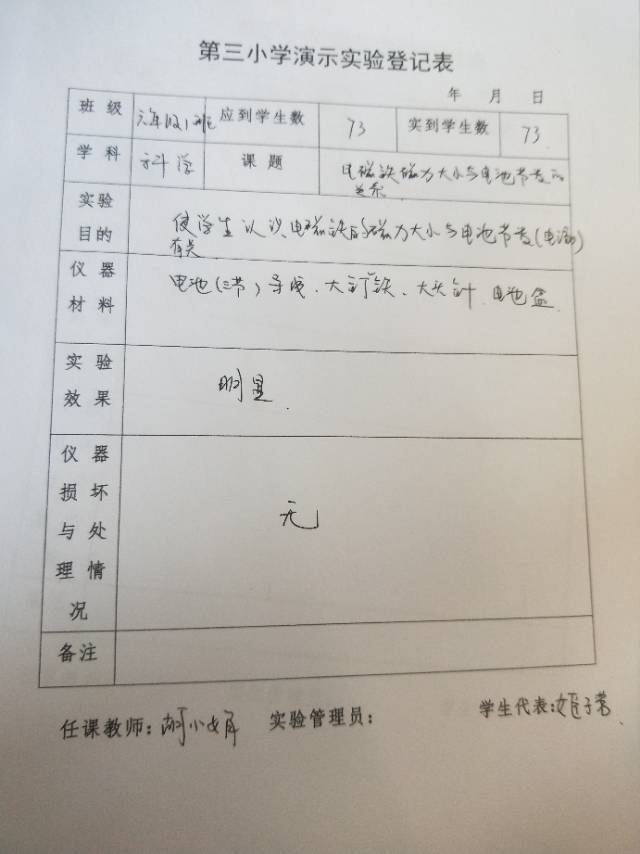 第三小学演示实验登记表
年 月 日
班级 六年级1班 应到学生数 73 实到学生数 73.
学科 科学 课题 电磁铁磁力大小与电池节数的
关系
实验目的 使学生认识电磁铁的磁力大小与电池节数(电流)
有关
仪器材料 电池(三节)导线、大铁钉、大头针、电池盒
实验效果 明显.
仪器损坏与处理情况 无
备注
任课教师: 胡小娟 实验管理员: 学生代表: